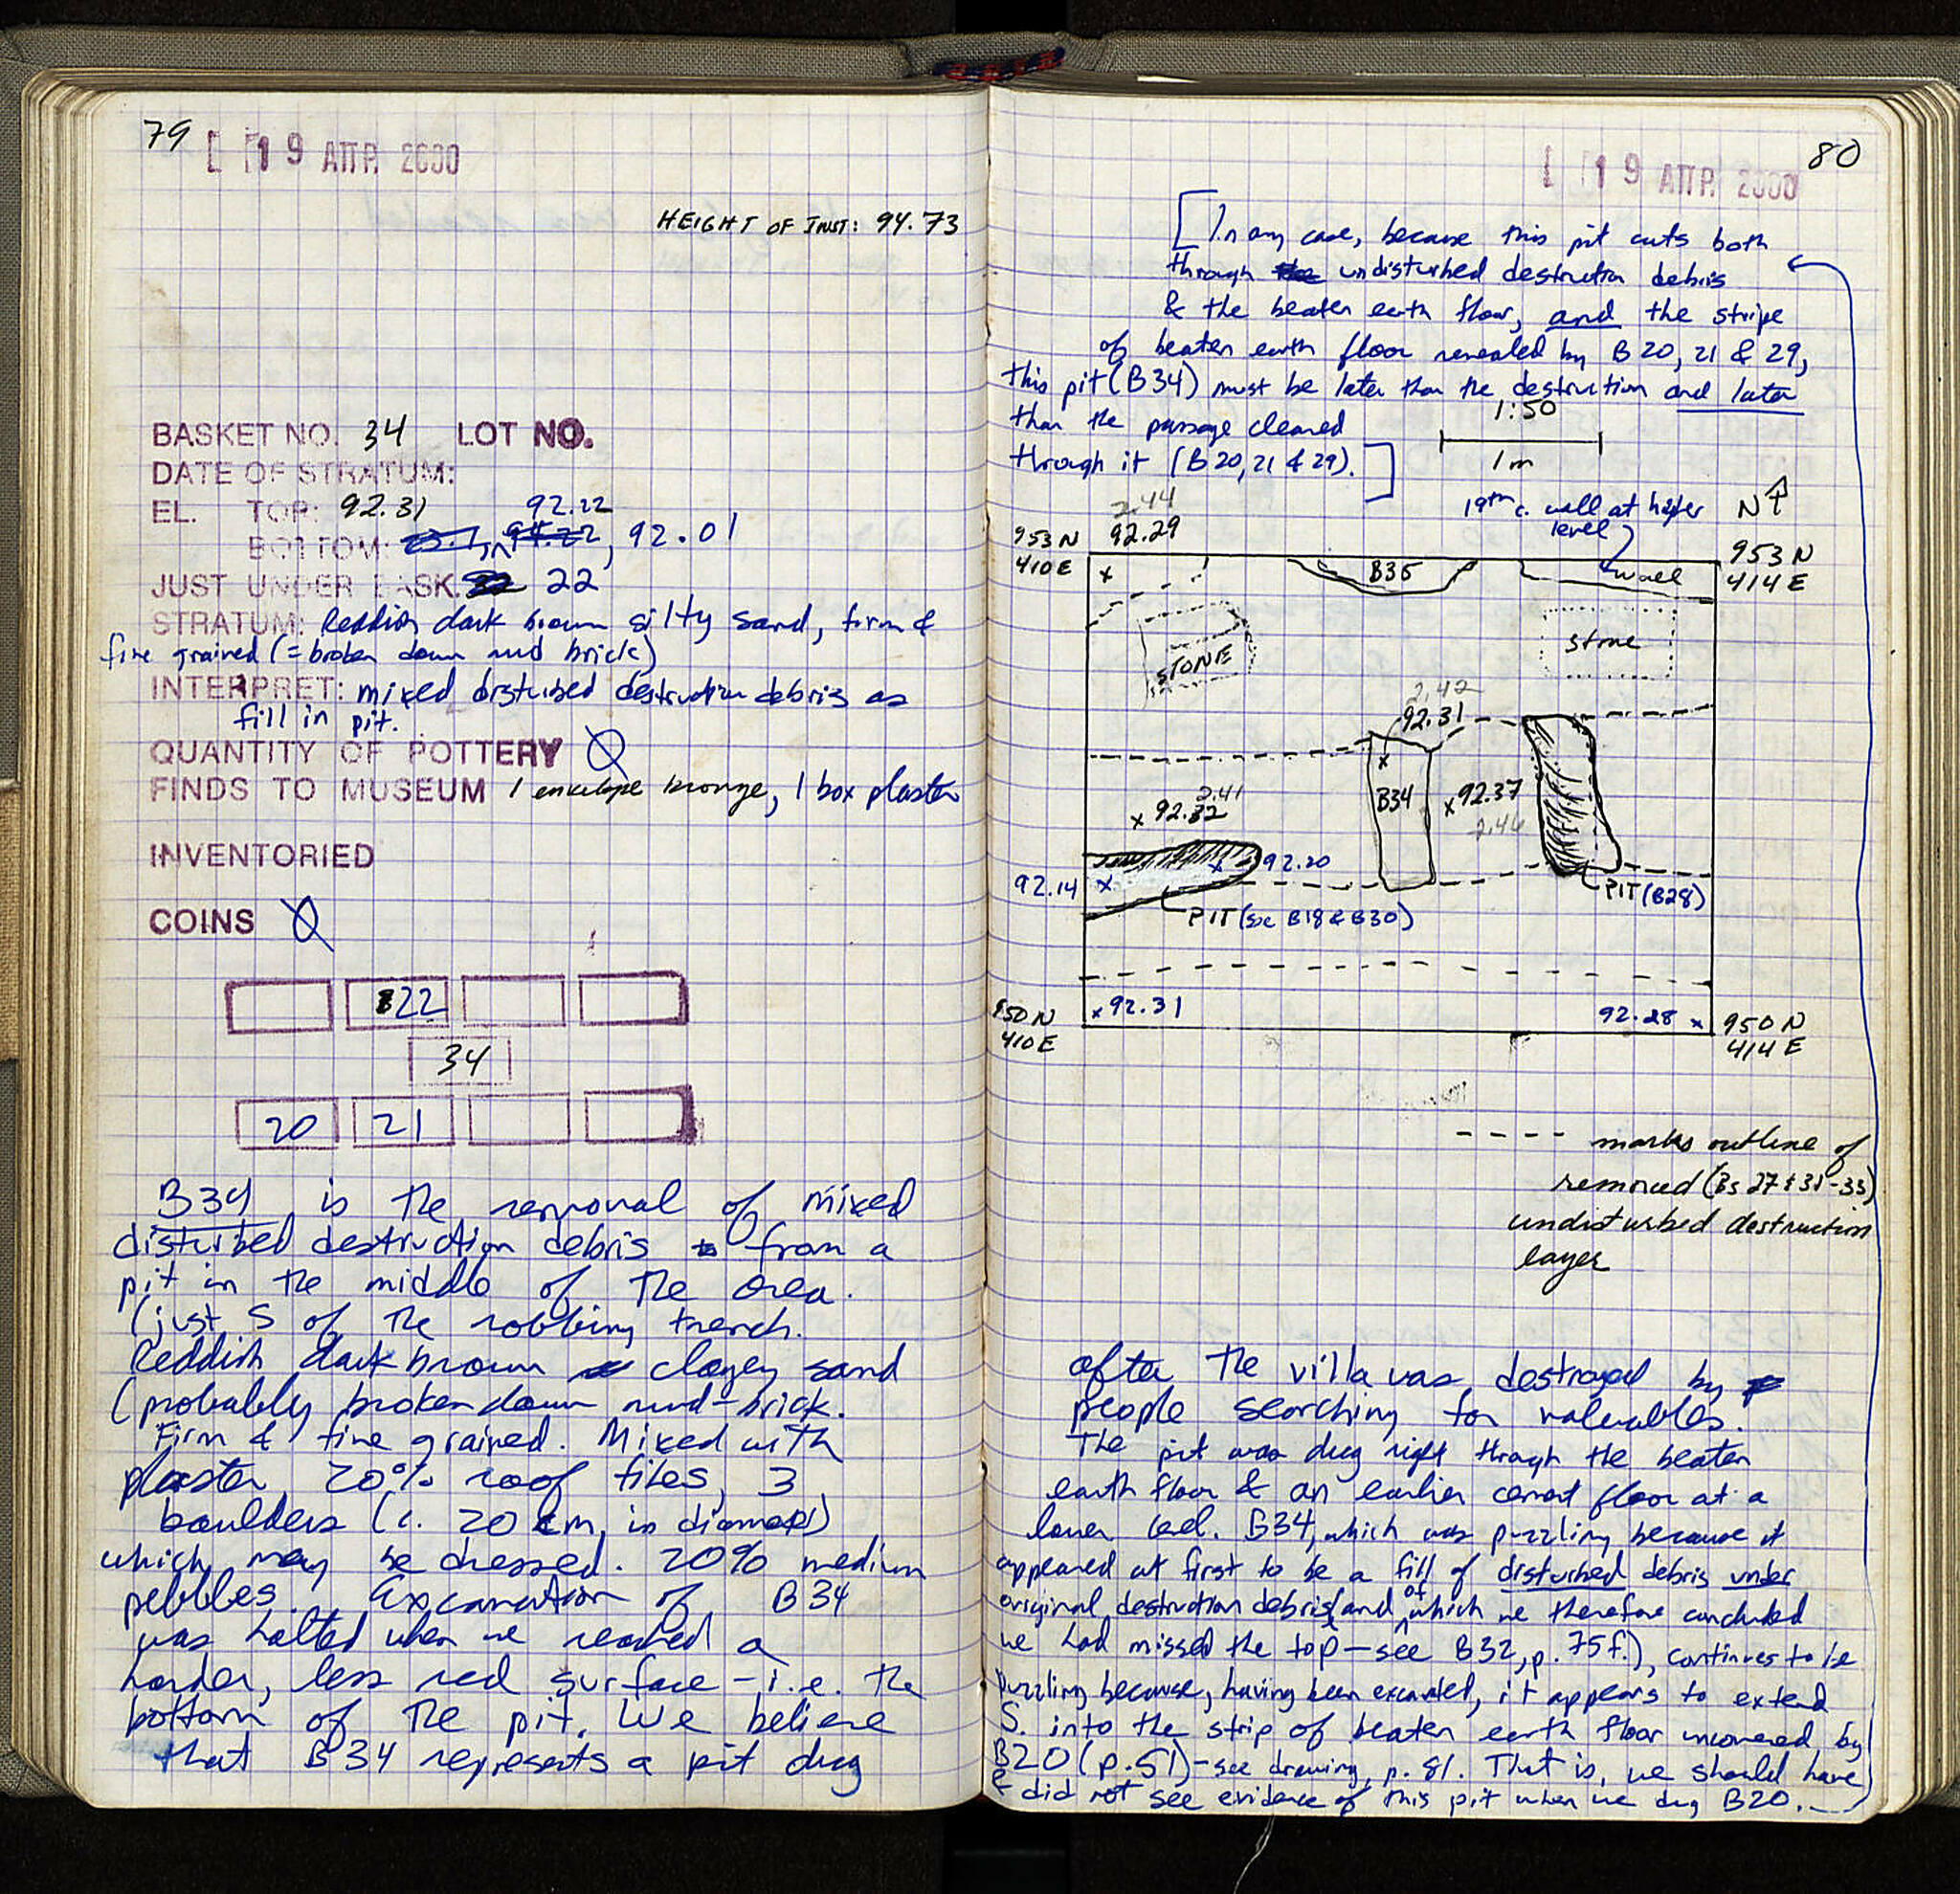 79
19 ΑΠΡ. 2000
HEIGHT OF INST: 94.73
BASKET NO. 34 LOT NO.
DATE OF STRATUM:
EL. TOP: 92.31 92.22
BOTTOM: 92.01
JUST UNDER BASK. 22
STRATUM: Reddish dark brown silty sand, firm &
fine grained (= broken down mud brick)
INTERPRET: mixed disturbed destruction debris as
fill in pit.
QUANTITY OF POTTERY Ø
FINDS TO MUSEUM 1 envelope bronze, 1 box plaster
INVENTORIED
COINS Ø
B22
34
20 21
B34 is the removal of mixed
disturbed destruction debris from a
pit in the middle of the area.
(just S of the robbing trench.
Reddish dark brown clayey sand
(probably broken down mud-brick.
Firm & fine grained. Mixed with
plaster, 20% roof tiles, 3
boulders (c. 20 cm, in diameter)
which may be dressed. 20% medium
pebbles. Excavation of B34
was halted when we reached a
harder, less red surface - i.e. the
bottom of the pit. We believe
that B34 represents a pit dug
80
19 ΑΠΡ. 2000
[In any case, because this pit cuts both
through the undisturbed destruction debris
& the beaten earth floor, and the stripe
of beaten earth floor revealed by B20, 21 & 29,
this pit (B34) must be later than the destruction and later
than the passage cleared
through it (B20, 21 & 29).]
1:50
1m
19th c. wall at higher
level
N
953 N
410 E
2.44
92.29
953 N
414 E
B35
wall
STONE
stone
2.42
92.31
B34
92.37
2.46
2.41
92.32
92.20
92.14
PIT (B28)
PIT (see B18 & B30)
92.31
92.28
950 N
410 E
950 N
414 E
---- marks outline of
removed (Bs 27 & 31-33)
undisturbed destruction
layer
after the villa was destroyed by
people searching for valuables.
The pit was dug right through the beaten
earth floor & an earlier cement floor at a
lower level. B34, which was puzzling because it
appeared at first to be a fill of disturbed debris under
original destruction debris (and of which we therefore concluded
we had missed the top — see B32, p. 75f.), continues to be
puzzling because, having been excavated, it appears to extend
S. into the strip of beaten earth floor uncovered by
B20 (p. 51) - see drawing, p. 81. That is, we should have
& did not see evidence of this pit when we dug B20.